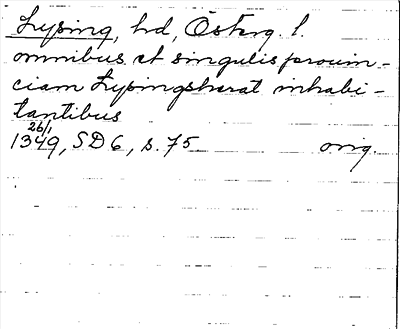 Lysing, hd, Österg. l.
omnibus et singulis prouin-
ciam Lysingsherat inhabi-
tantibus
26/1
1349, SD 6, s. 75. orig.